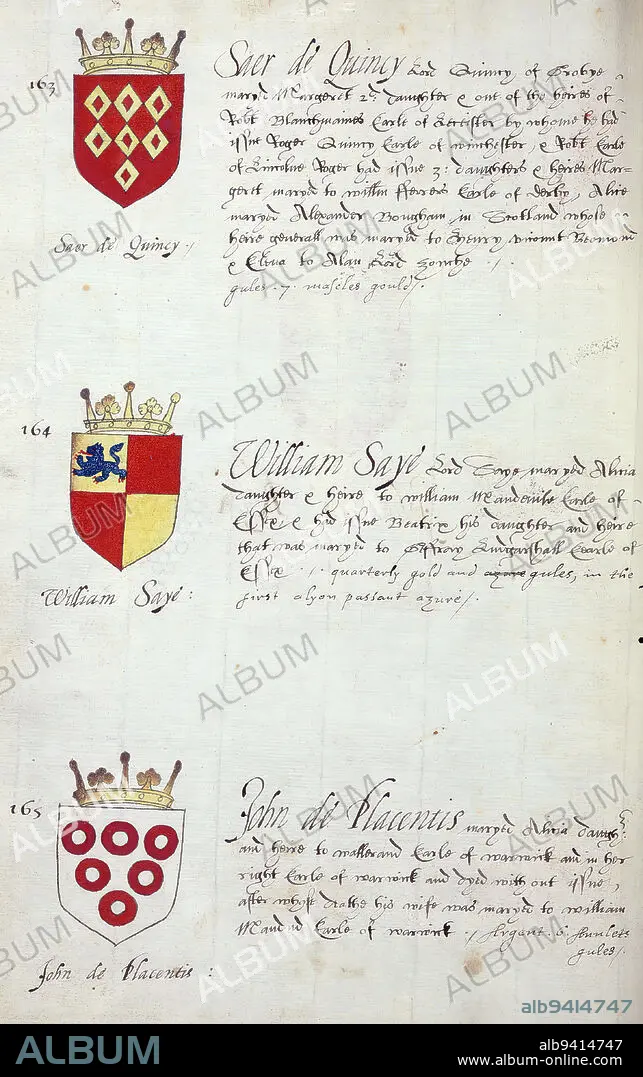 163
Saer de Quincy Lord Quincy of Grobye
maryed Margeret 2d daughter & one of the heires of
Robt Blanchmaines Earle of Leicister by whome he had
issue Roger Quincy Earle of winchester, & Robt Earle
of Lincolne Roger had issue 3: daughters & heires Mar-
geret maryed to willm fferrers Earle of derby, Alice
maryed Alexander in Scotland whose
heire generall was maryed to Henry vicont
& Elena to Alan Lord zouche
gules . 7 . mascles gould /.
Saer de Quincy . /
164
William Saye Lord Saye maryed Alicia
daughter & heire to william Mandevile Earle of
Essex & had issue Beatrix his daughter and heire
that was maryed to Geffrary Ludgarshall Earle of
Essex . /. quarterly gold and azure gules, in the
first a lyon passant azure /.
William Saye :
165
John de Placentis maryed Alicia daughr
and heire to wallerand Earle of warwick and in her
right Earle of warwick and dyed with out issue,
after whose his wife was maryed to william
Earle of warwick . / Argent . 6 .
gules /.
John de Placentis :
ALBUM
alb9414747
ALBUM
alb9414747
www.album-online.com